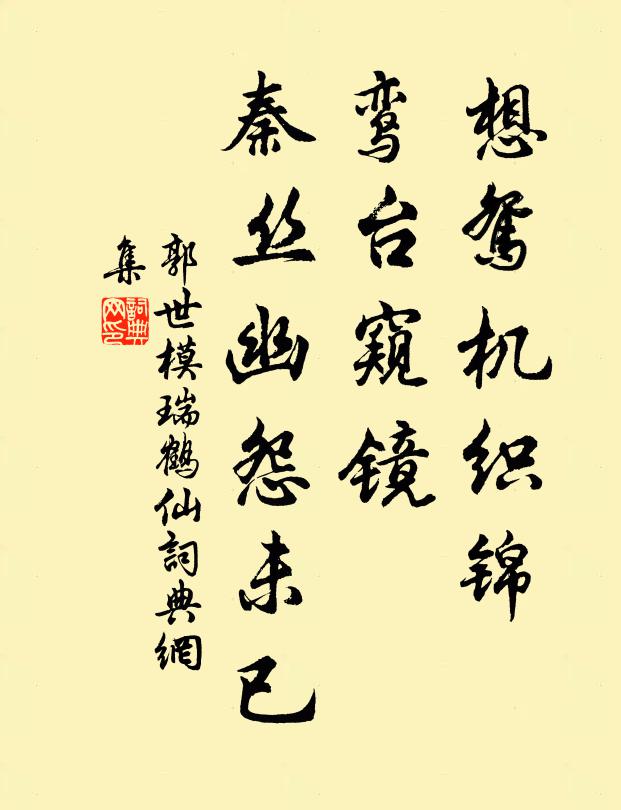 想鸳机织锦
鸾台窥镜
秦丝幽怨未已
郭世模瑞鹤仙詞典網
集
詞典
网印